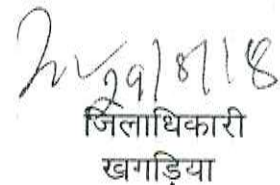 29/8/18
जिलाधिकारी
खगड़िया